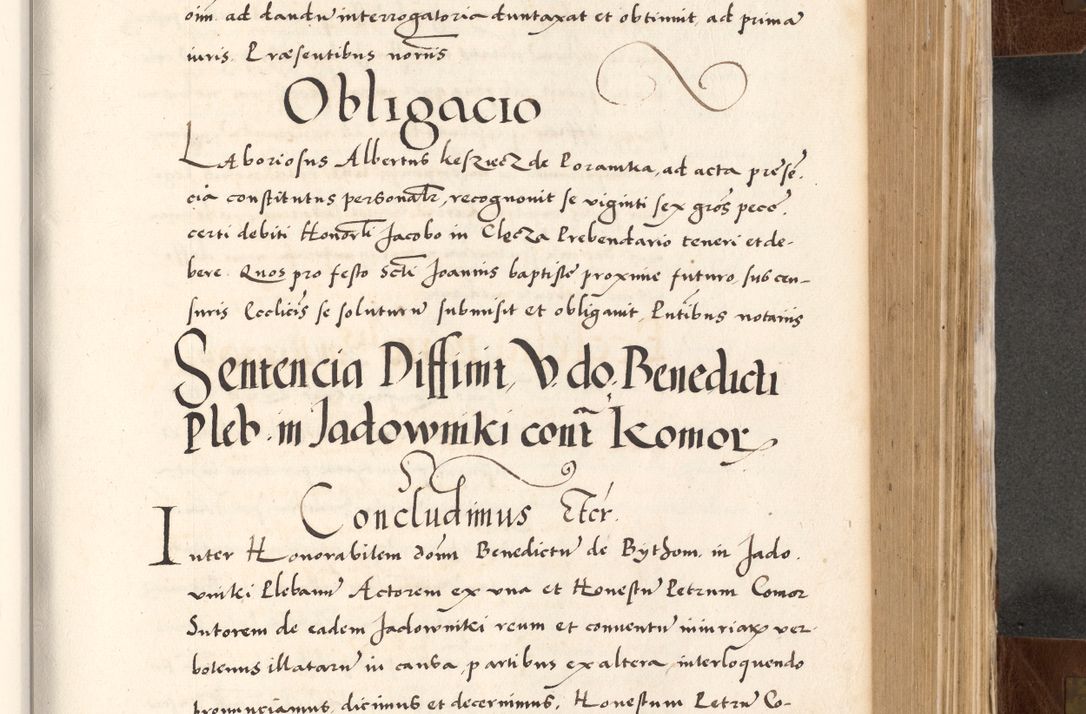 om̄ ad dandū interrogatoria duntaxat et obtinuit, ad prima
iuris. Præsentibus nōrīis
Obligacio
LAboriosus Albertus keszucz de Poramka, ad acta presē.
cia constitutus personalr̄, recognouit se viginti sex gros̄ pecō.
certi debiti Honorl̄i Jacobo in Clęcza Prebendario teneri et de-
bere. Quos pro festo Sc̄ti Joannis baptistē proxime futuro, sub cen-
suris Ecclicis̄ se soluturū submisit et obligauit, Pn̄tibus notariis
Sentencia Diffinit, V. do. Benedicti
Pleb. in Jadowniki contr̄ Komor
Concludimus Etcr̄.
Inter Honorabilem dom̄ Benedictū de Bythom, in Jado.
wniki Plebanū Actorem ex vna et Honestū Petrum Comor
Sutorem de eadem Jadowniki reum et conuentū iniuriaꝝ ver-
botenus illatarū in causa, partibus ex altera, interloquendo
pronunciamus, dicimus et decernimus, Honestum Petrū Co-